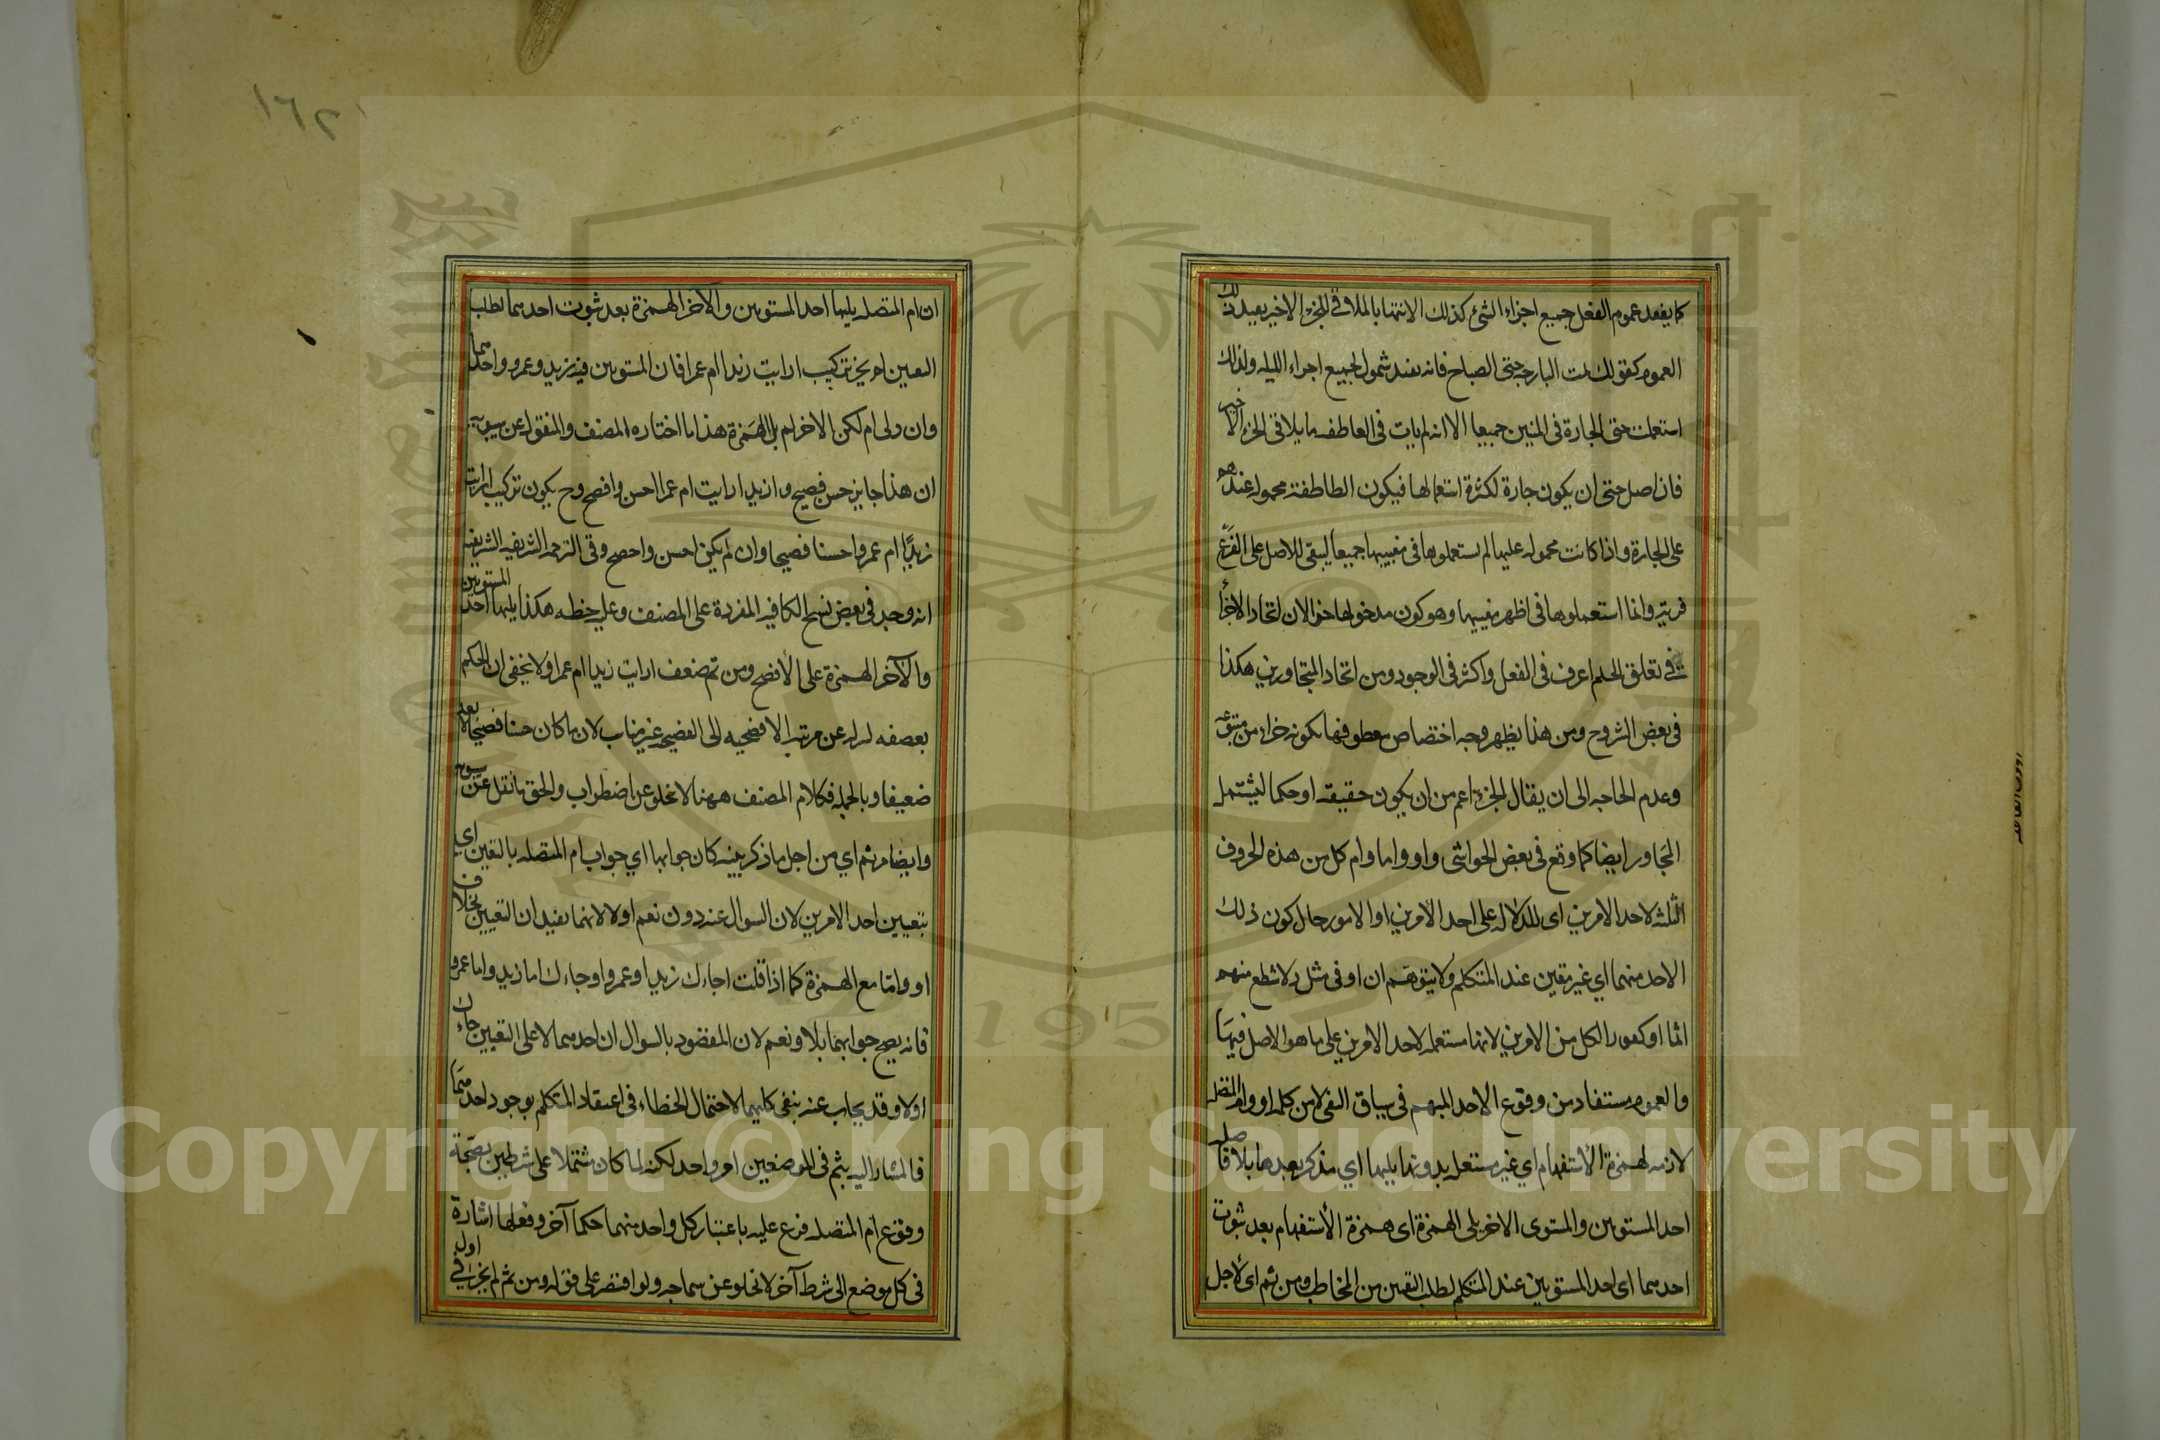 كما يفيد عموم الفعل جميع اجزاء الشئ كذلك الانتهاء بالملاقى الجزء الاخير يفيد ذلك
العموم كقولك نمت البارحة حتى الصباح فانه يفيد شمول لجميع اجزاء الليله ولذلك
استعملت حتى الجارة فى المعنيين جميعا الا انه لم يات فى العاطفه ما يلاقى الجزء الاخير
فان اصل حتى ان يكون جارة لكثرة استعمالها فيكون العاطفة محموله عندهم
على الجارة واذا كانت محموله عليها لم يستعملوها فى معنييها جميعا ليبقى للاصل على الفرع
مزية وانما استعملوها فى اظهر معنييها وهو كون مدخولها جزا لان اتحاد الاجزا
فى تعلق الحكم اعرف فى الفعل واكثر فى الوجود من اتحاد المتجاورين هكذا
فى بعض الشروح ومن هذا يظهر وجه اختصاص معطوفها بكونه جزاء من متبوعه
وعدم الحاجه الى ان يقال الجزء اعم من ان يكون حقيقه او حكما ليشتمل
المجاور ايضا كما وقع فى بعض الحواشى واو واما وام كل من هذه الحروف
الثلثه لاحد الامرين اى للدلاله على احد الامرين او الامور حال كون ذلك
الاحد منهما اي غير متعين عند المتكلم ولا يتوهم ان او فى مثل ولا تطع منهم
اثما او كفورا لكل من الامرين لانها مستعمله لاحد الامرين على ما هو الاصل فيها
والعموم مستفاد من وقوع الاحد المبهم فى سياق النفى لا من كلمه او وام المتصله
لازمه لهمزة الأستفهام اي غير مستعمله بدونها يليها اي يذكر بعدها بلا فاصله
احد المستويين والمستوى الاخر يلى الهمزة اى همزة الأستفهام بعد ثبوت
احدهما اى احد المستويين عند المتكلم لطلب التعين من المخاطب ومن ثم اى لأجل
١٦٢
ان ام المتصله يليها احد المستويين والآخر الهمزة بعد ثبوت احدهما لطلب
التعيين لم يجز تركيب ارايت زيدا ام عمرا فان المستويين فيه زيد وعمرو واحدهما
وان ولى ام لكن الاخر لم يل الهمزة هذا ما اختاره المصنف والمنقول عن سيبويه
ان هذا جايز حسن فصيح وازيدا رايت ام عمرا احسن وافصح وح يكون تركيب ارايت
زيدًا ام عمروا حسنا فصيحا وان لم يكن احسن وافصح وفى الترجمه الشريفيه الشريفيه
انه وجد فى بعض نسخ الكافيه المقروة على المصنف وعليه خطه هكذا يليها احد المستويين
والآخر الهمزة على الأفصح ومن ثم ضعف ارايت زيدا ام عمرا ولا يخفى ان الحكم
بضعفه لنزله عن مرتبه الافصحيه الى الفصيحه غير مناسب لان ما كان حسنا فصيحا لا يعد
ضعيفا وبالجمله فكلام المصنف ههنا لا يخلو عن اضطراب والحق ما نقل عن سيبويه
وايضا من ثم اي من اجل ما ذكر بعينه كان جوابها اي جواب ام المتصله بالتعين اي
بتعيين احد الامرين لان السوال عنه دون نعم او لا لانهما يفيدان التعيين بخلاف
او واما مع الهمزة كما اذا قلت اجاءك زيد او عمرو او جاءك اما زيد واما عمرو
فانه يصح جوابهما بلا او نعم لان المقصود بالسوال ان احدهما لا على التعيين جاءك
اولا وقد يجاب عنه بنفى كليهما لاحتمال الخطاء فى اعتقاد المتكلم بوجود احدهما
فالمشار اليه بثم فى الموضعين امر واحد لكنه لما كان مشتملا على شرطين لصحة
وقوع ام المتصله فرع عليه باعتبار كل واحد منهما حكما آخر وفعلها اشارة
فى كل موضع الى شرط آخر لا تخلو عن سماجه ولو اقتصر على قوله ومن ثم لم يجز فى اول
Copyright © King Saud University
1957